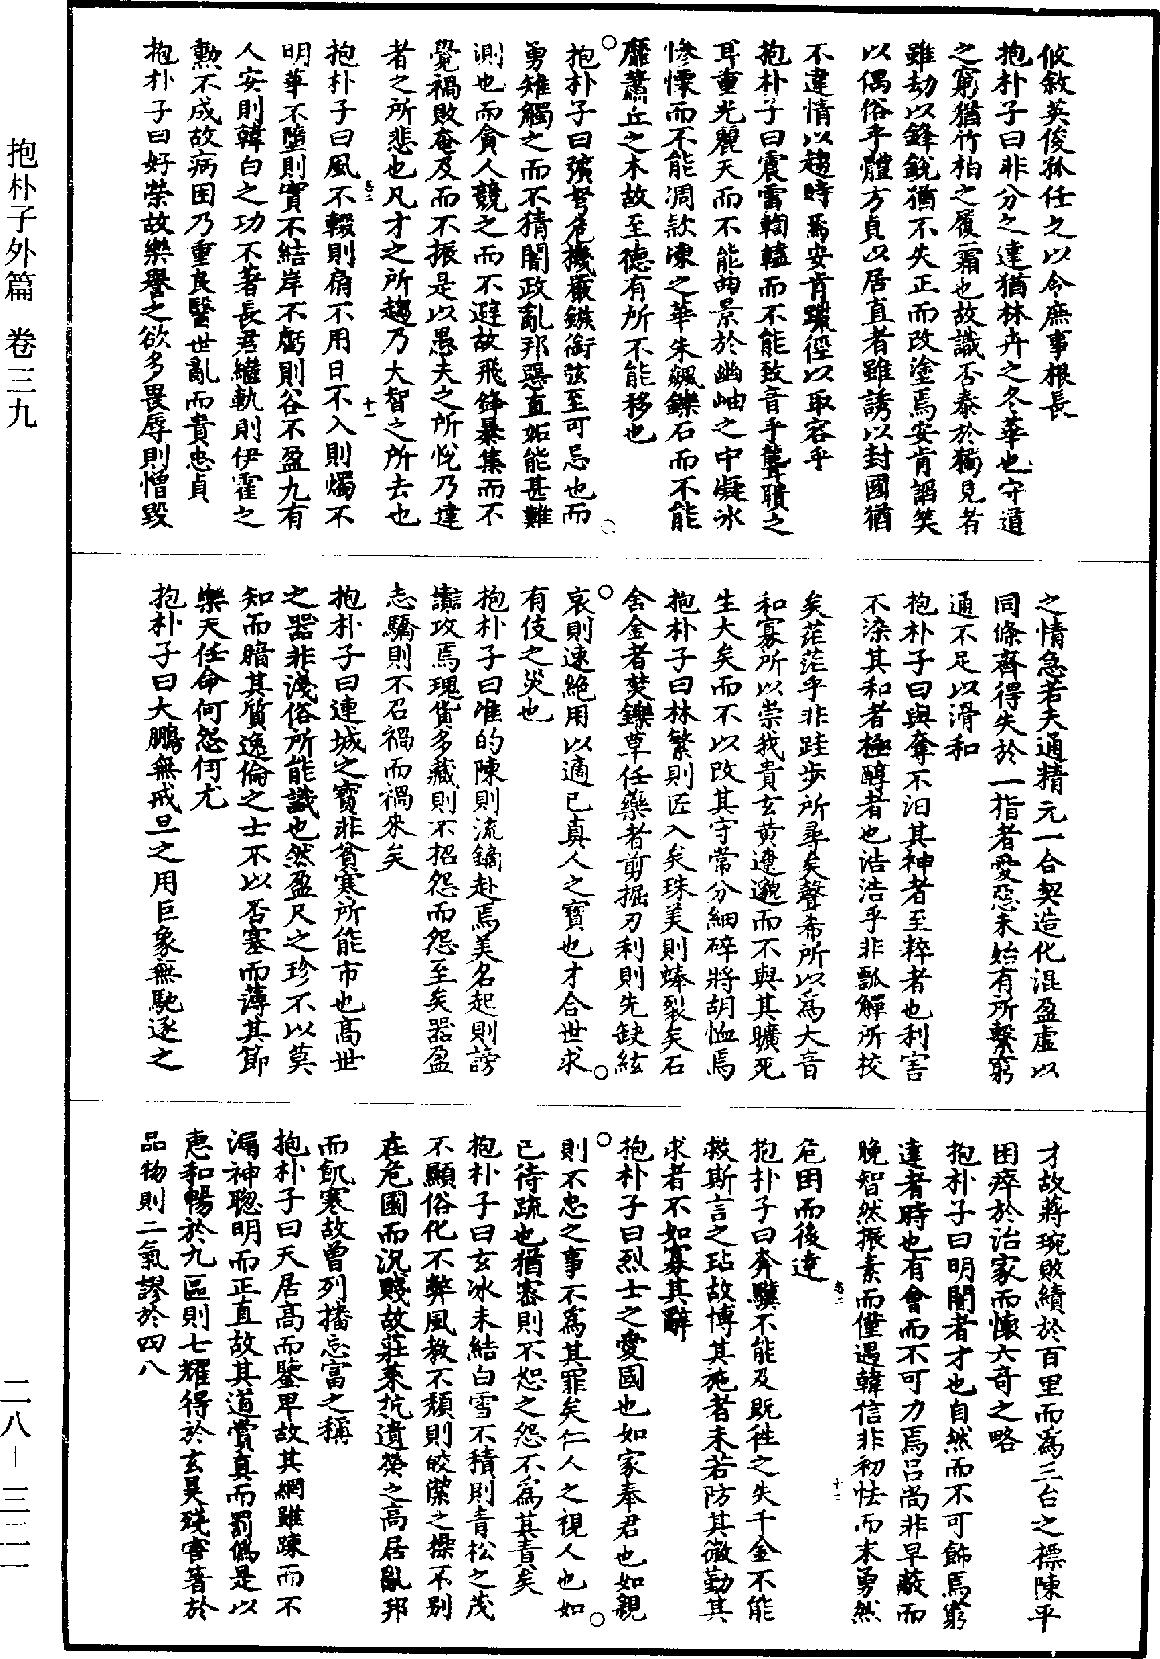 攸敘英俊孤任之以令庶事根長
抱朴子曰非分之達猶林卉之冬華也守道
之窮猶竹柏之履霜也故識否泰於獨見者
雖劫以鋒銳猶不失正而改塗焉安肯謟笑
以偶俗乎體方貞以居直者雖誘以封國猶
不違情以趨時焉安肯躐徑以取容乎
抱朴子曰震雷輷轤而不能致音乎聾聵之
耳重光麗天而不能曲景於幽岫之中凝冰
慘慄而不能凋款凍之華朱飆鑠石而不能
靡蕭丘之木故至德有所不能移也
抱朴子曰彍弩危機嚴鏃銜弦至可忌也而
勇雉觸之而不猜闇政亂邦惡直妬能甚難
測也而貪人競之而不避故飛鋒暴集而不
覺禍敗奄及而不振是以愚夫之所悅乃達
者之所悲也凡才之所趨乃大智之所去也
抱朴子曰風不輟則扇不用日不入則燭不
明華不墮則實不結岸不虧則谷不盈九有
人安則韓白之功不著長君繼軌則伊霍之
勲不成故病困乃重良醫世亂而貴忠貞
抱朴子曰好榮故樂譽之欲多畏辱則憎毀
之情急若夫通精元一合契造化混盈虛以
同條齊得失於一指者愛惡未始有所繫窮
通不足以滑和
抱朴子曰與奪不汩其神者至粹者也利害
不染其和者極醇者也浩浩乎非瓢觶所校
矣茫茫乎非跬步所尋矣聲希所以為大音
和寡所以崇我貴玄黃遼邈而不與其曠死
生大矣而不以改其守常分細碎將胡恤焉
抱朴子曰林繁則匠入矣珠美則蜯裂矣石
含金者焚鑠草任藥者剪掘刃利則先缺絃
哀則速絕用以適己真人之寶也才合世求
有伎之災也
抱朴子曰准的陳則流鏑赴焉美名起則謗
讟攻焉瑰貨多藏則不招怨而怨至矣器盈
志驕則不召禍而禍來矣
抱朴子曰連城之寶非貧寒所能市也高世
之器非淺俗所能識也然盈尺之珍不以莫
知而暗其質逸倫之士不以否塞而薄其節
樂天任命何怨何尤
抱朴子曰大鵬無戒旦之用巨象無馳逐之
才故蔣琬敗績於百里而為三台之標陳平
困瘁於治家而懷六奇之略
抱朴子曰明闇者才也自然而不可飾焉窮
達者時也有會而不可力焉呂尚非早蔽而
晚智然振素而僅遇韓信非初怯而末勇然
危困而後達
抱朴子曰奔驥不能及既往之失千金不能
救斯言之玷故博其施者未若防其微勤其
求者不如寡其辭
抱朴子曰烈士之愛國也如家奉君也如親
則不忠之事不為其罪矣仁人之視人也如
己待疏也猶密則不恕之怨不為其責矣
抱朴子曰玄冰未結白雪不積則青松之茂
不顯俗化不弊風教不頹則皎潔之操不別
在危國而沉賤故莊萊抗遺榮之高居亂邦
而飢寒故曾列播忘富之稱
抱朴子曰天居高而鑒卑故其網雖踈而不
漏神聰明而正直故其道賞真而罰偽是以
惠和暢於九區則七耀得於玄昊殘害著於
品物則二氣謬於四八
抱朴子外篇 卷三九
二八—三二一